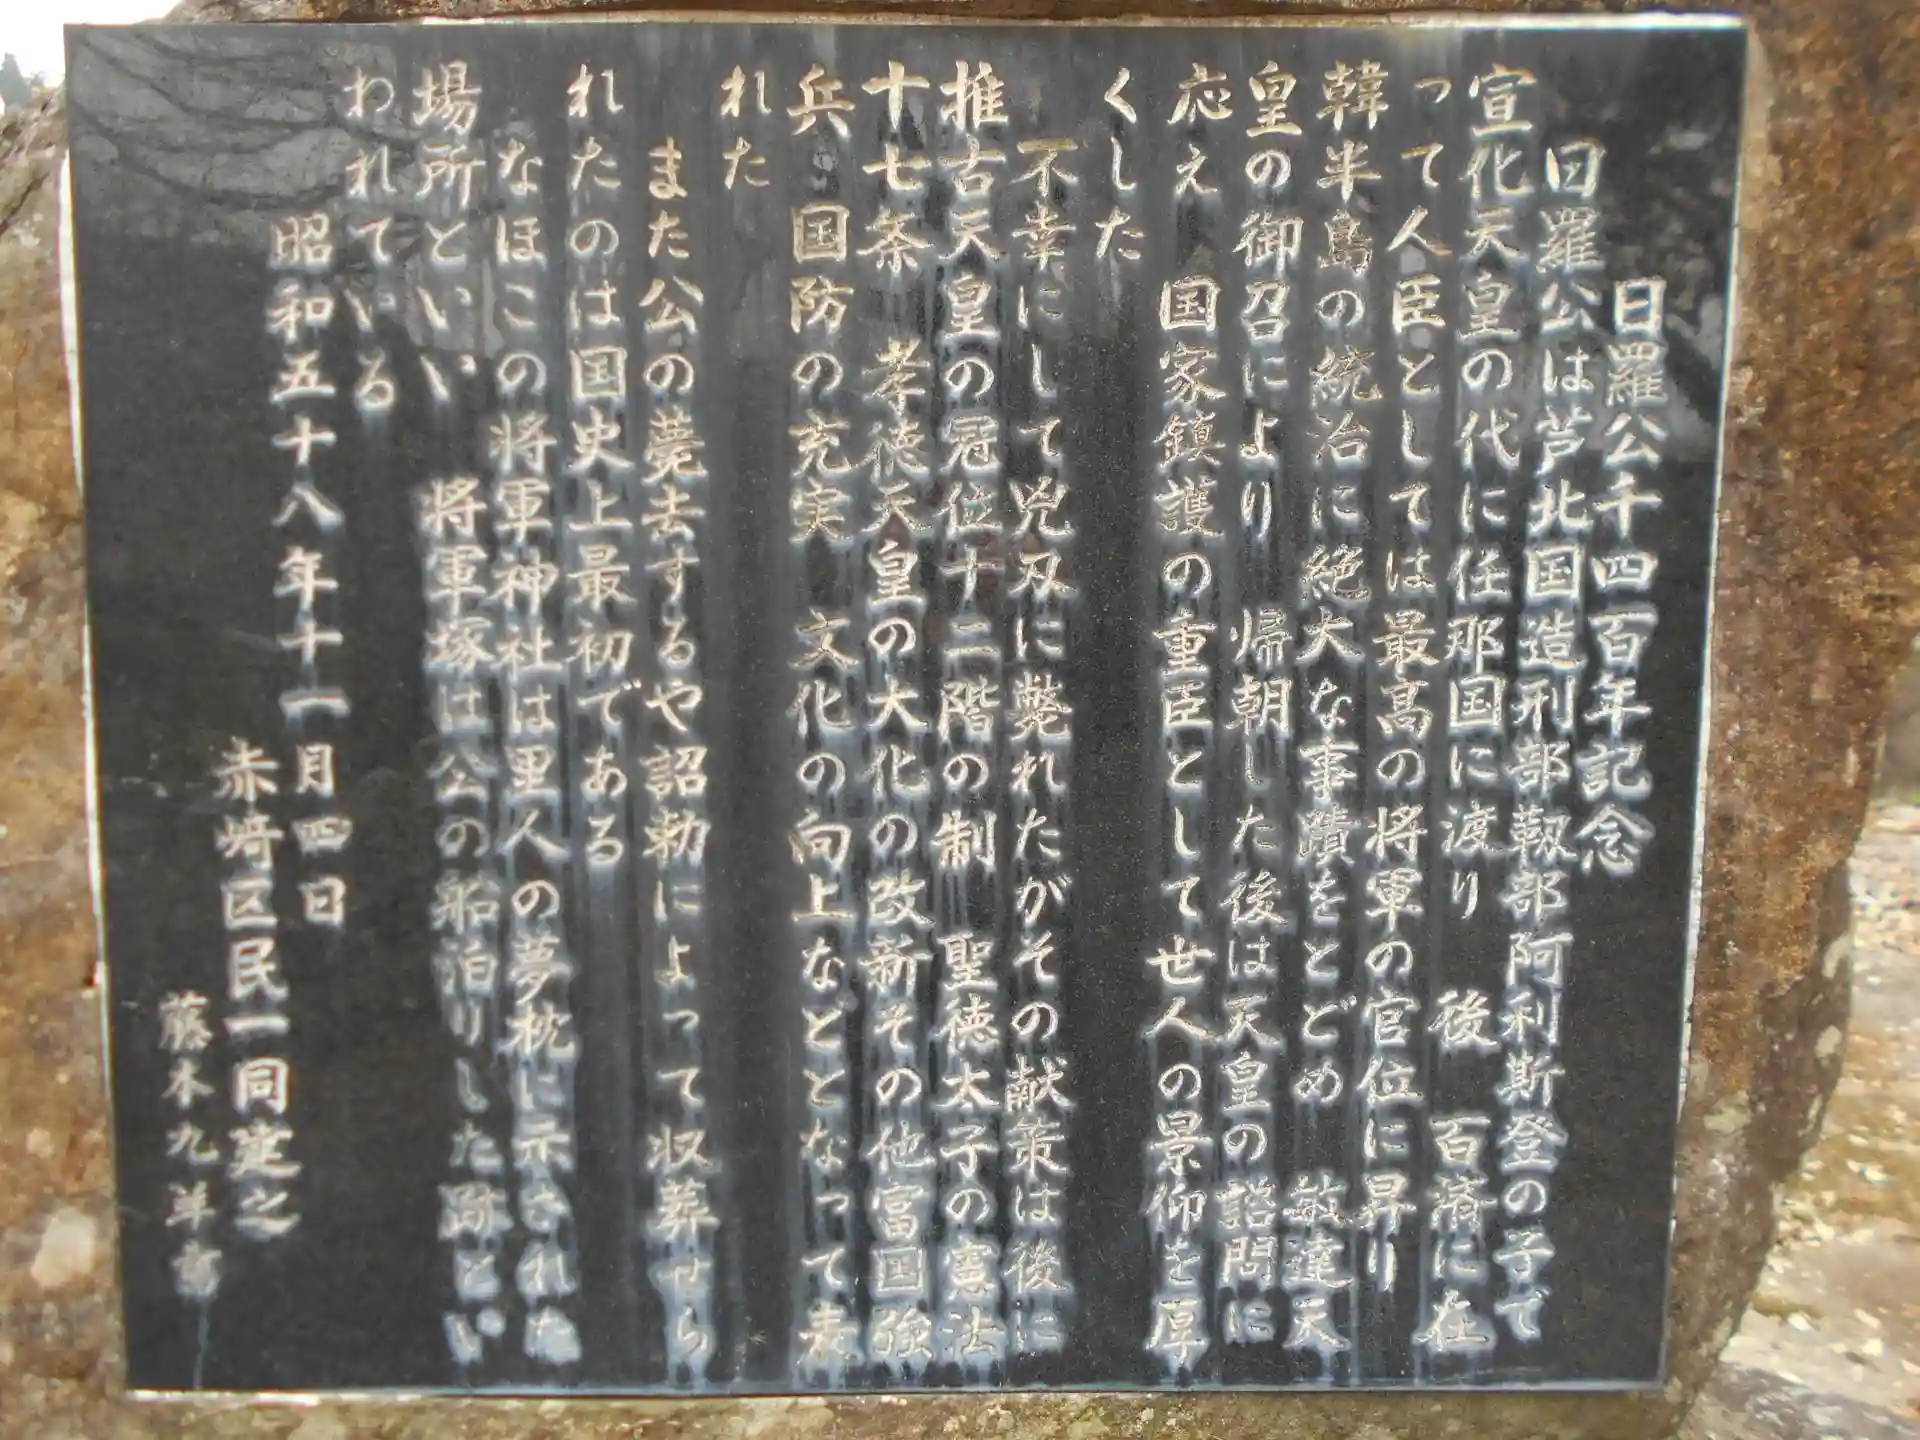 日羅公千四百年記念
日羅公は芦北国造利部靱部阿利斯登の子で
宣化天皇の代に任那国に渡り　後　百済に在
って人臣としては最高の将軍の官位に昇り
韓半島の統治に絶大な事蹟をとどめ　敏達天
皇の御召により　帰朝した後は天皇の諮問に
応え　国家鎮護の重臣として世人の景仰を厚
くした
不幸にして兇刄に斃れたがその献策は後に
推古天皇の冠位十二階の制　聖徳太子の憲法
十七条　孝徳天皇の大化の改新その他富国強
兵　国防の充実　文化の向上などとなって表
れた
また公の薨去するや詔勅によって収葬せら
れたのは国史上最初である
なほこの将軍神社は里人の夢枕に示された
場所といい　将軍塚は公の船泊りした跡とい
われている
昭和五十八年十一月四日
赤崎区民一同建之
藤本九洋書